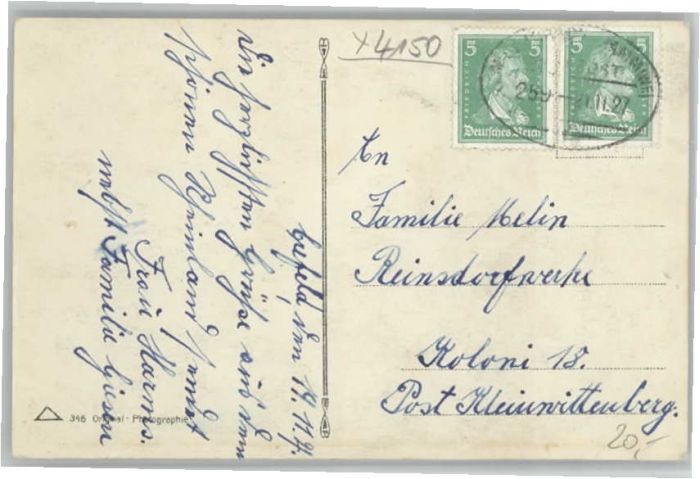 Crefeld, den 19.11.27.
Die herzlichsten Grüße aus dem
schönen Rheinland sendet
Frau Harms.
nebst Familie
346 Original-Photographie
x4150
5 5
FRIEDRICH
Deutsches Reich
5 5
Deutsches Reich
BAHNPOST
.11.27
An
Familie Melin
Reinsdorfwerke
Koloni 18.
Post Kleinwittenberg.
20,-